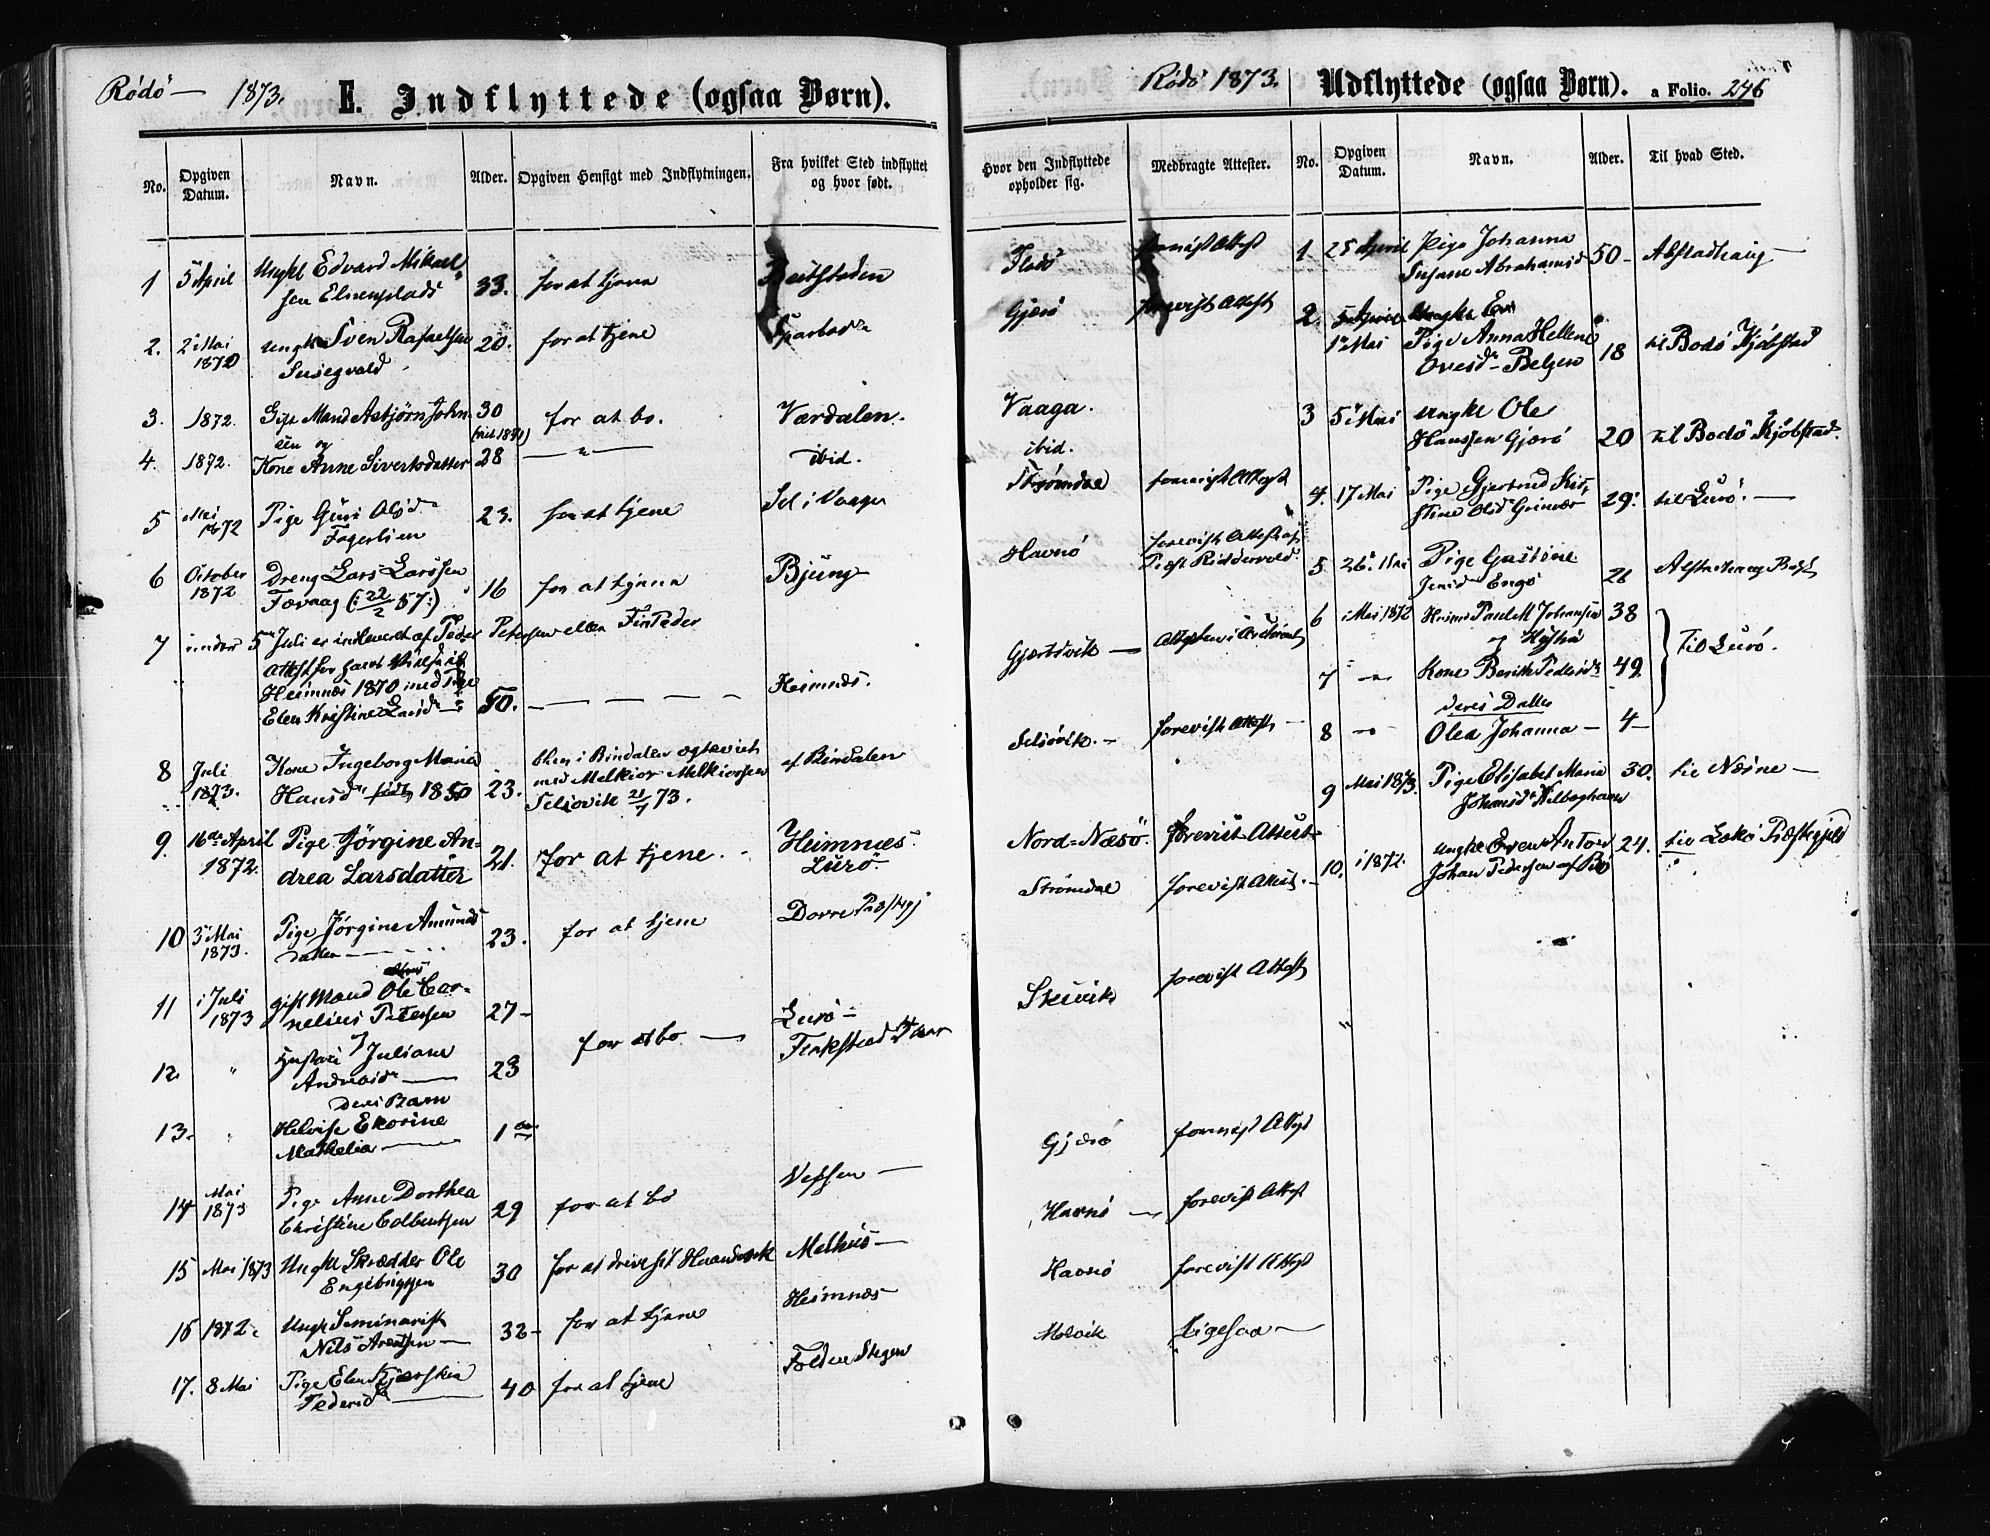 Rödö — 1873. E. Indflyttede (ogsaa Børn).
No. Opgiven Datum. Navn. Alder. Opgiven Hensigt med Indflytningen. Fra hvilket Sted indflyttet og hvor født.
1 5 April Ungkl Edvard Mikael- 33. for at tjene
sen
2. 2 Mai 1870 Ungk Sven Rafaelsen 20. for at tjene Sparbo
3. 1872. Gift Mand Asbjørn John- 30 for at bo. Værdalen.
sen og
4. 1872. Kone Anne Sivertsdatter 28 — " — ibid.
5 Mai 1872 Pige Guri Olsd 23. for at tjene Sel i Vaage
Fagerlien
6 October 1872 Dreng Lars Larssen 16 for at tjene Bjung
Tævaag (: 22/2 57 :)
7 under 5 Juli er indleveret af Peder Petersen eller Fin Peder
Attest for
Heimnæs 1870 med Pige
Elen Kristine Larsd — 50. — — — — Heimnæs.
8 Juli 1873. Kone Ingeborg Maria 23. bleven i Bindalen ægteviet af Bindalen
Hansd født 1850 med Melkior Melkiorsen
Selsovik 21/7 73.
9. 16de April 1872. Pige Jörgine An- 21. for at tjene. Heimnæs
drea Larsdatter Lurö
10 3 Mai 1873. Pige Jørgine Amunds 23. for at tjene Dovre Præstegj
datter —
11 i Juli 1873 gift Mand Ole Cor- 27 - Lurö -
nelius Petersen for at bo —
12. " Hustru Juliane 23
Andreasd —
deres Barn
13. " Helvise Ekorine 1
Mathelia —
14 Mai 1873 Pige Anne Dorthea 29 for at bo Vefsen —
Christine Colbentsen
15 Mai 1873 Ungkl Skrædder Ole 30 for at drive sit Haandverk Melhus —
Engebrigtsen
16 1872. Ungk Seminarist 32 - for at tjene Heimnæs
Nils Arentsen —
17. 8 Mai Pige Elen 40 for at tjene Folden Stegen
Pedersd —
Rödö 1873. Udflyttede (ogsaa Børn). a Folio. 246
Hvor den Indflyttede opholder sig. Medbragte Attester. No. Opgiven Datum. Navn. Alder. Til hvad Sted.
forevist Attest 1 25 April Pige Johanna 50 - Alstadhaug —
Susane Abrahamsd
Gjærø forevist Attest 2. 5 April Ungkl
1 Mai Pige Anna Hellene 18 til Bodö Kjöbstad
Ovesd - Belgen
Vaaga. 3 5 Mai Ungkl Ole 20 til Bodö Kjöbstad.
ibid. Hanssen Gjærö
Strömdal forevist Attest 4. 17 Mai Pige Gjertrud Kir- 29. til Lurö. —
stine Olsd
Havnö forevist Attest af
Præst Riddervold 5 26. Mai Pige Gustine 26 Alstadhaug
Jensd Engö
Gjærdsvik — Attesten i Archivet 6 i Mai 1872 Paul M Johansen 38
7 — " — Kone Berith Pedersd 49 Til Lurö.
deres Datter
Selsövik. - forevist Attest — 8 — " — Olea Johanna — 4 -
9 Mai 1873. Pige Elisabet Maria 30. til Næsne —
Johansd Kilboghavn
Nord-Næsö. forevist Attest
10. i 1872. Ungkl Even Anton 24. til Præstegjeld
Johan Pedersen af
Strömdal forevist Attest. -
forevist Attest
Gjærö forevist Attest
Havnö — forevist Attest
Havnö forevist Attest
Melvik Ligesaa —